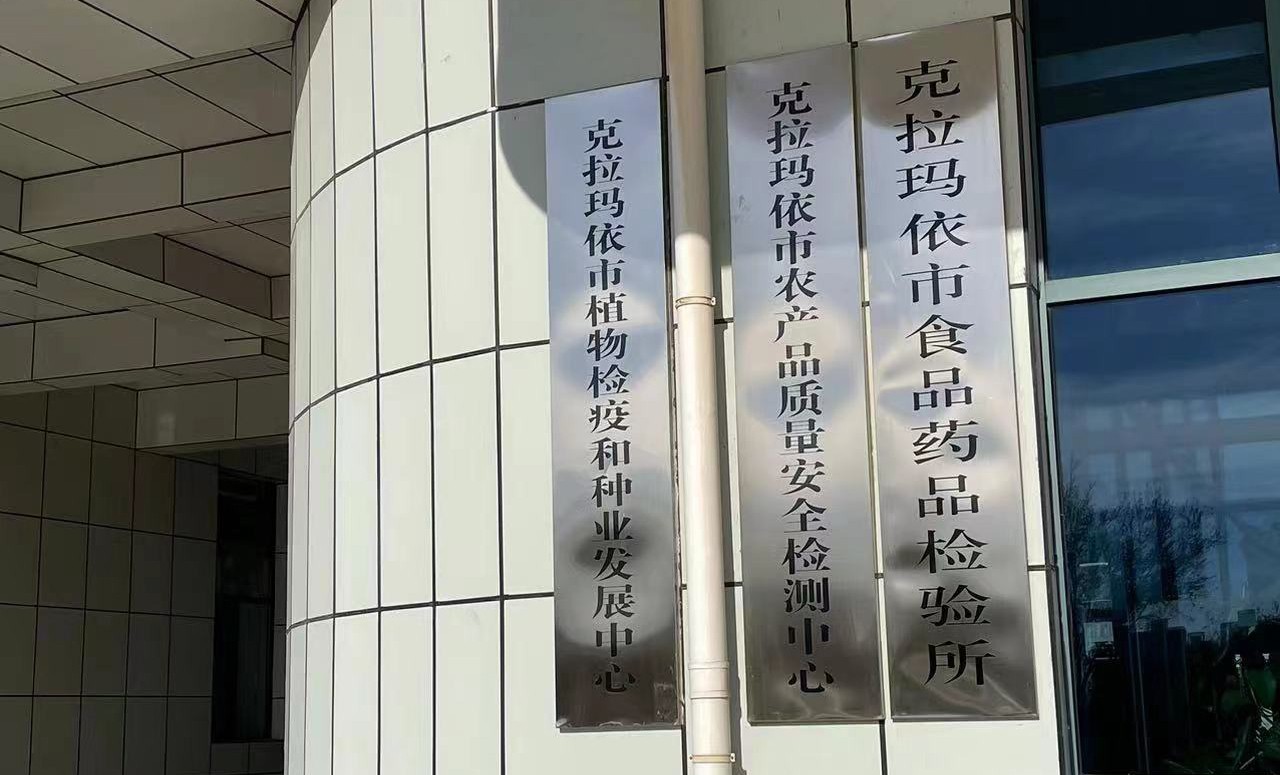 克拉玛依市植物检疫和种业发展中心
克拉玛依市农产品质量安全检测中心
克拉玛依市食品药品检验所